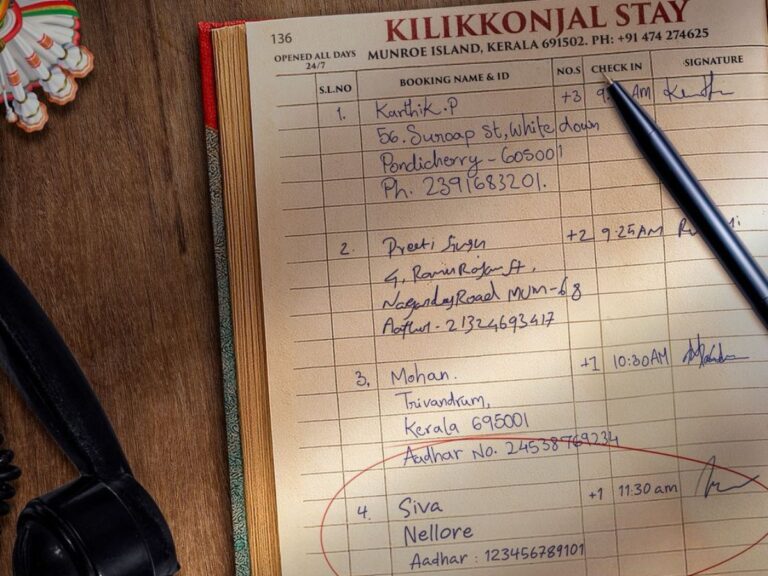 136
KILIKKONJAL STAY
MUNROE ISLAND, KERALA 691502. PH: +91 474 274625
OPENED ALL DAYS
24/7
S.L.NO BOOKING NAME & ID NO.S CHECK IN SIGNATURE
1. Karthik.P +3 AM
56. Suroap St, White down
Pondicherry - 605001
Ph. 2391683201.
2. Preeti +2 9:25AM
Road MUM-68
21324693417
3. Mohan. +1 10:30AM
Trivandrum,
Kerala 695001
Aadhar No. 24538769234
4. Siva +1 11:30 am
Nellore
Aadhar : 123456789101